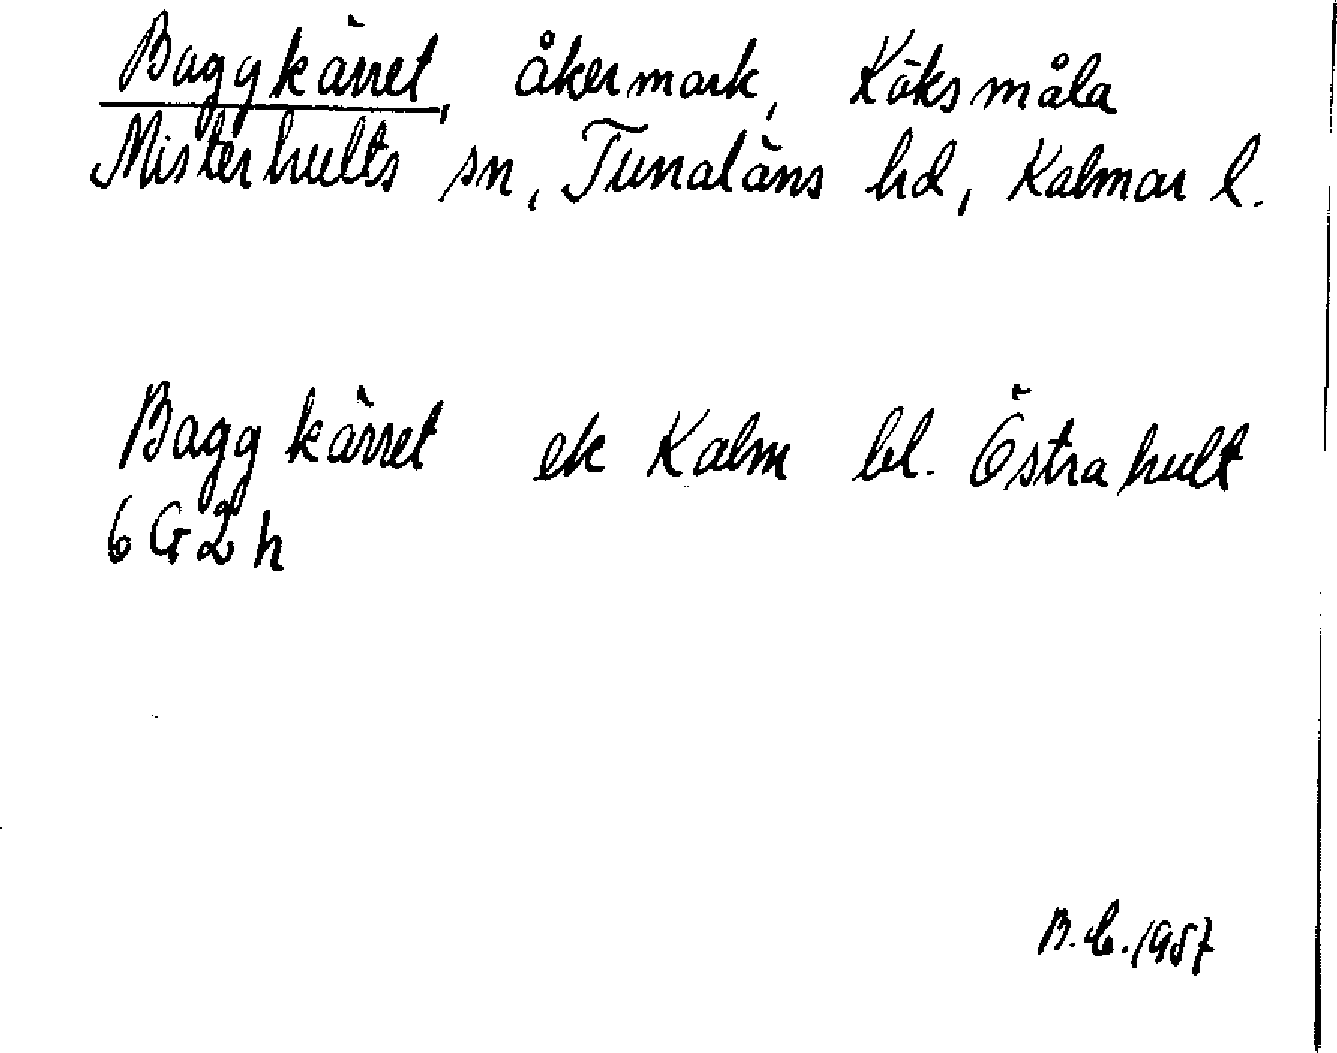 Baggkärret, åkermark, Köksmåla
Misterhults sn, Tunaläns hd, Kalmar l.
Baggkärret ek Kalm bl. Östrahult
6G2h
B.C.1957